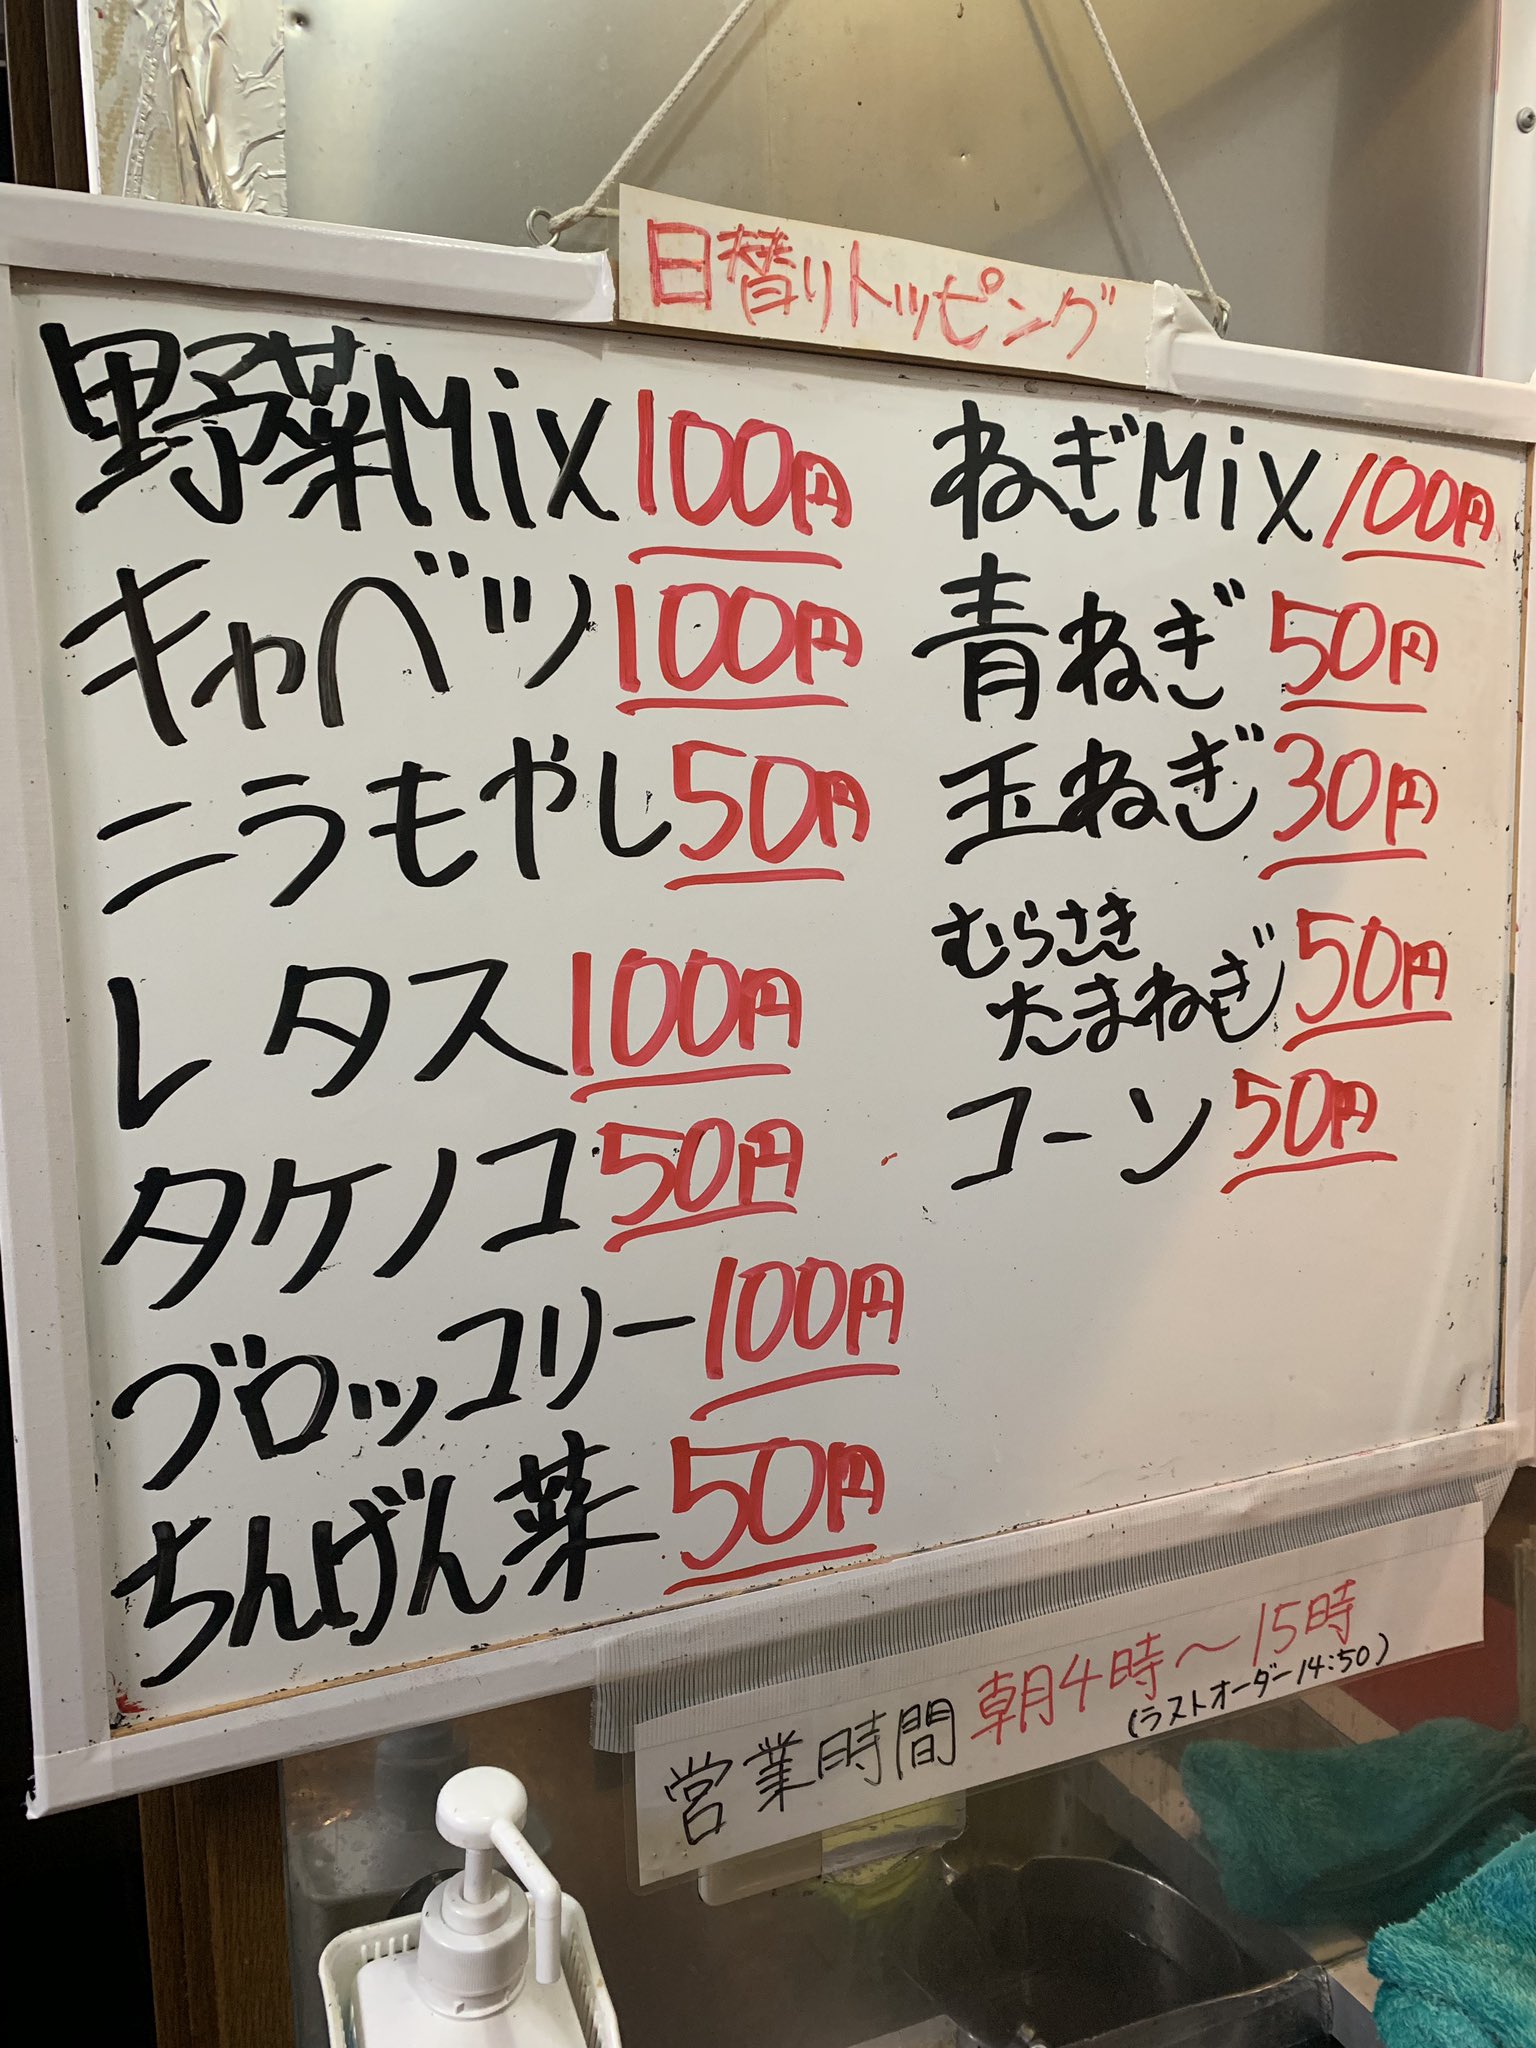 日替りトッピング
野菜Mix 100円
キャベツ 100円
ニラもやし 50円
レタス 100円
タケノコ 50円
ブロッコリー 100円
ちんげん菜 50円
ねぎMix 100円
青ねぎ 50円
玉ねぎ 30円
むらさき
たまねぎ 50円
コーン 50円
営業時間 朝4時〜15時
(ラストオーダー14:50)